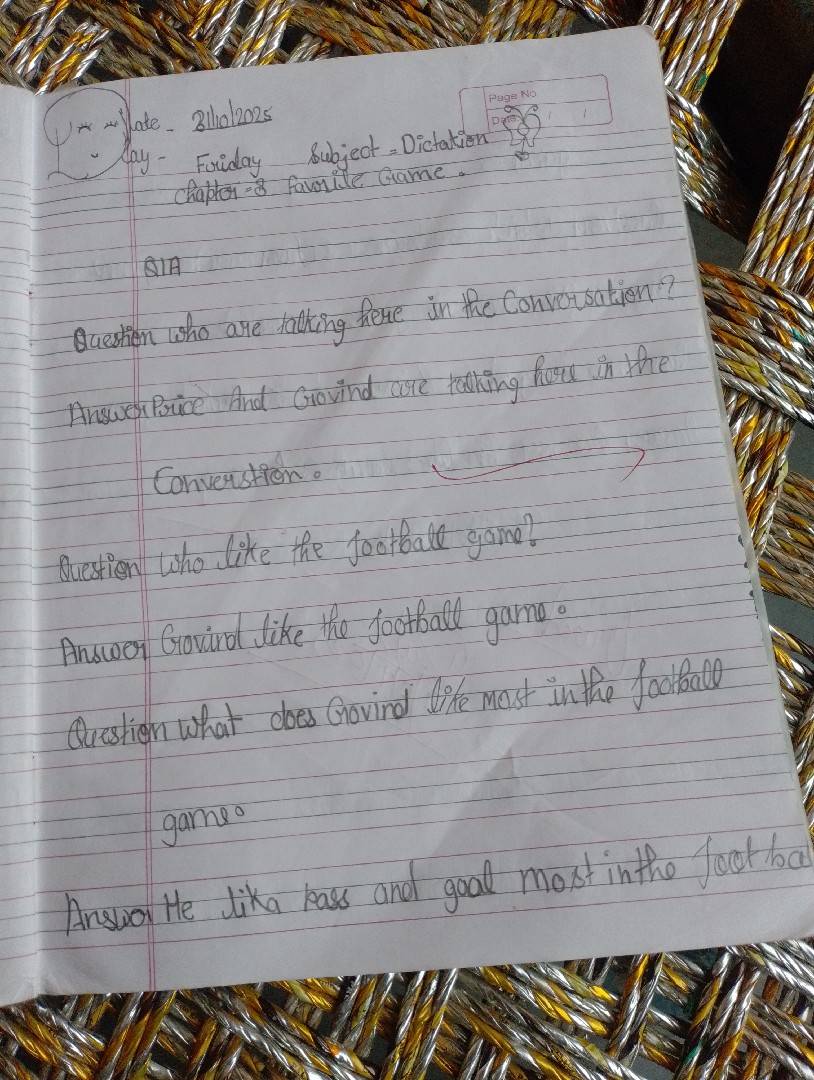 Page No
Date / /
Date - 31/10/2025
Day - Foriday Subject = Dictation
Chapter-3 favorite Game.
Q/A
Question who are talking here in the Conversation?
Answer Price And Govind are talking here in the
Converstion.
Question who like the football game?
Answer Govind like the football game.
Question what does Govind like most in the football
game.
Answer He lika pass and goal most in the footba